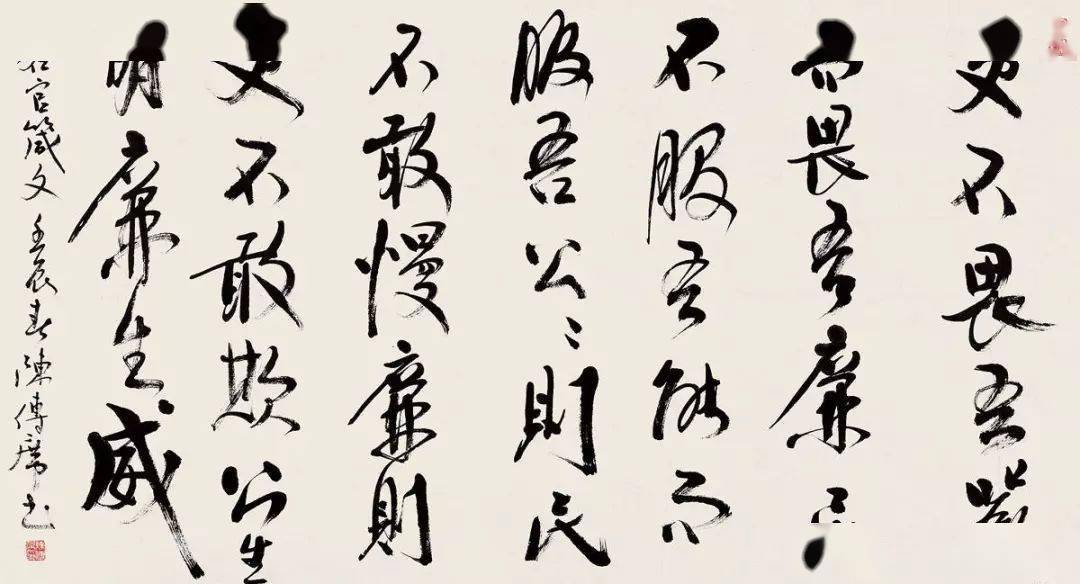 不畏吾
而畏吾廉
不服吾能而
服吾公〻則民
不敢慢廉則
不敢欺公生
明廉生威
官箴文 壬辰春陳傳席书